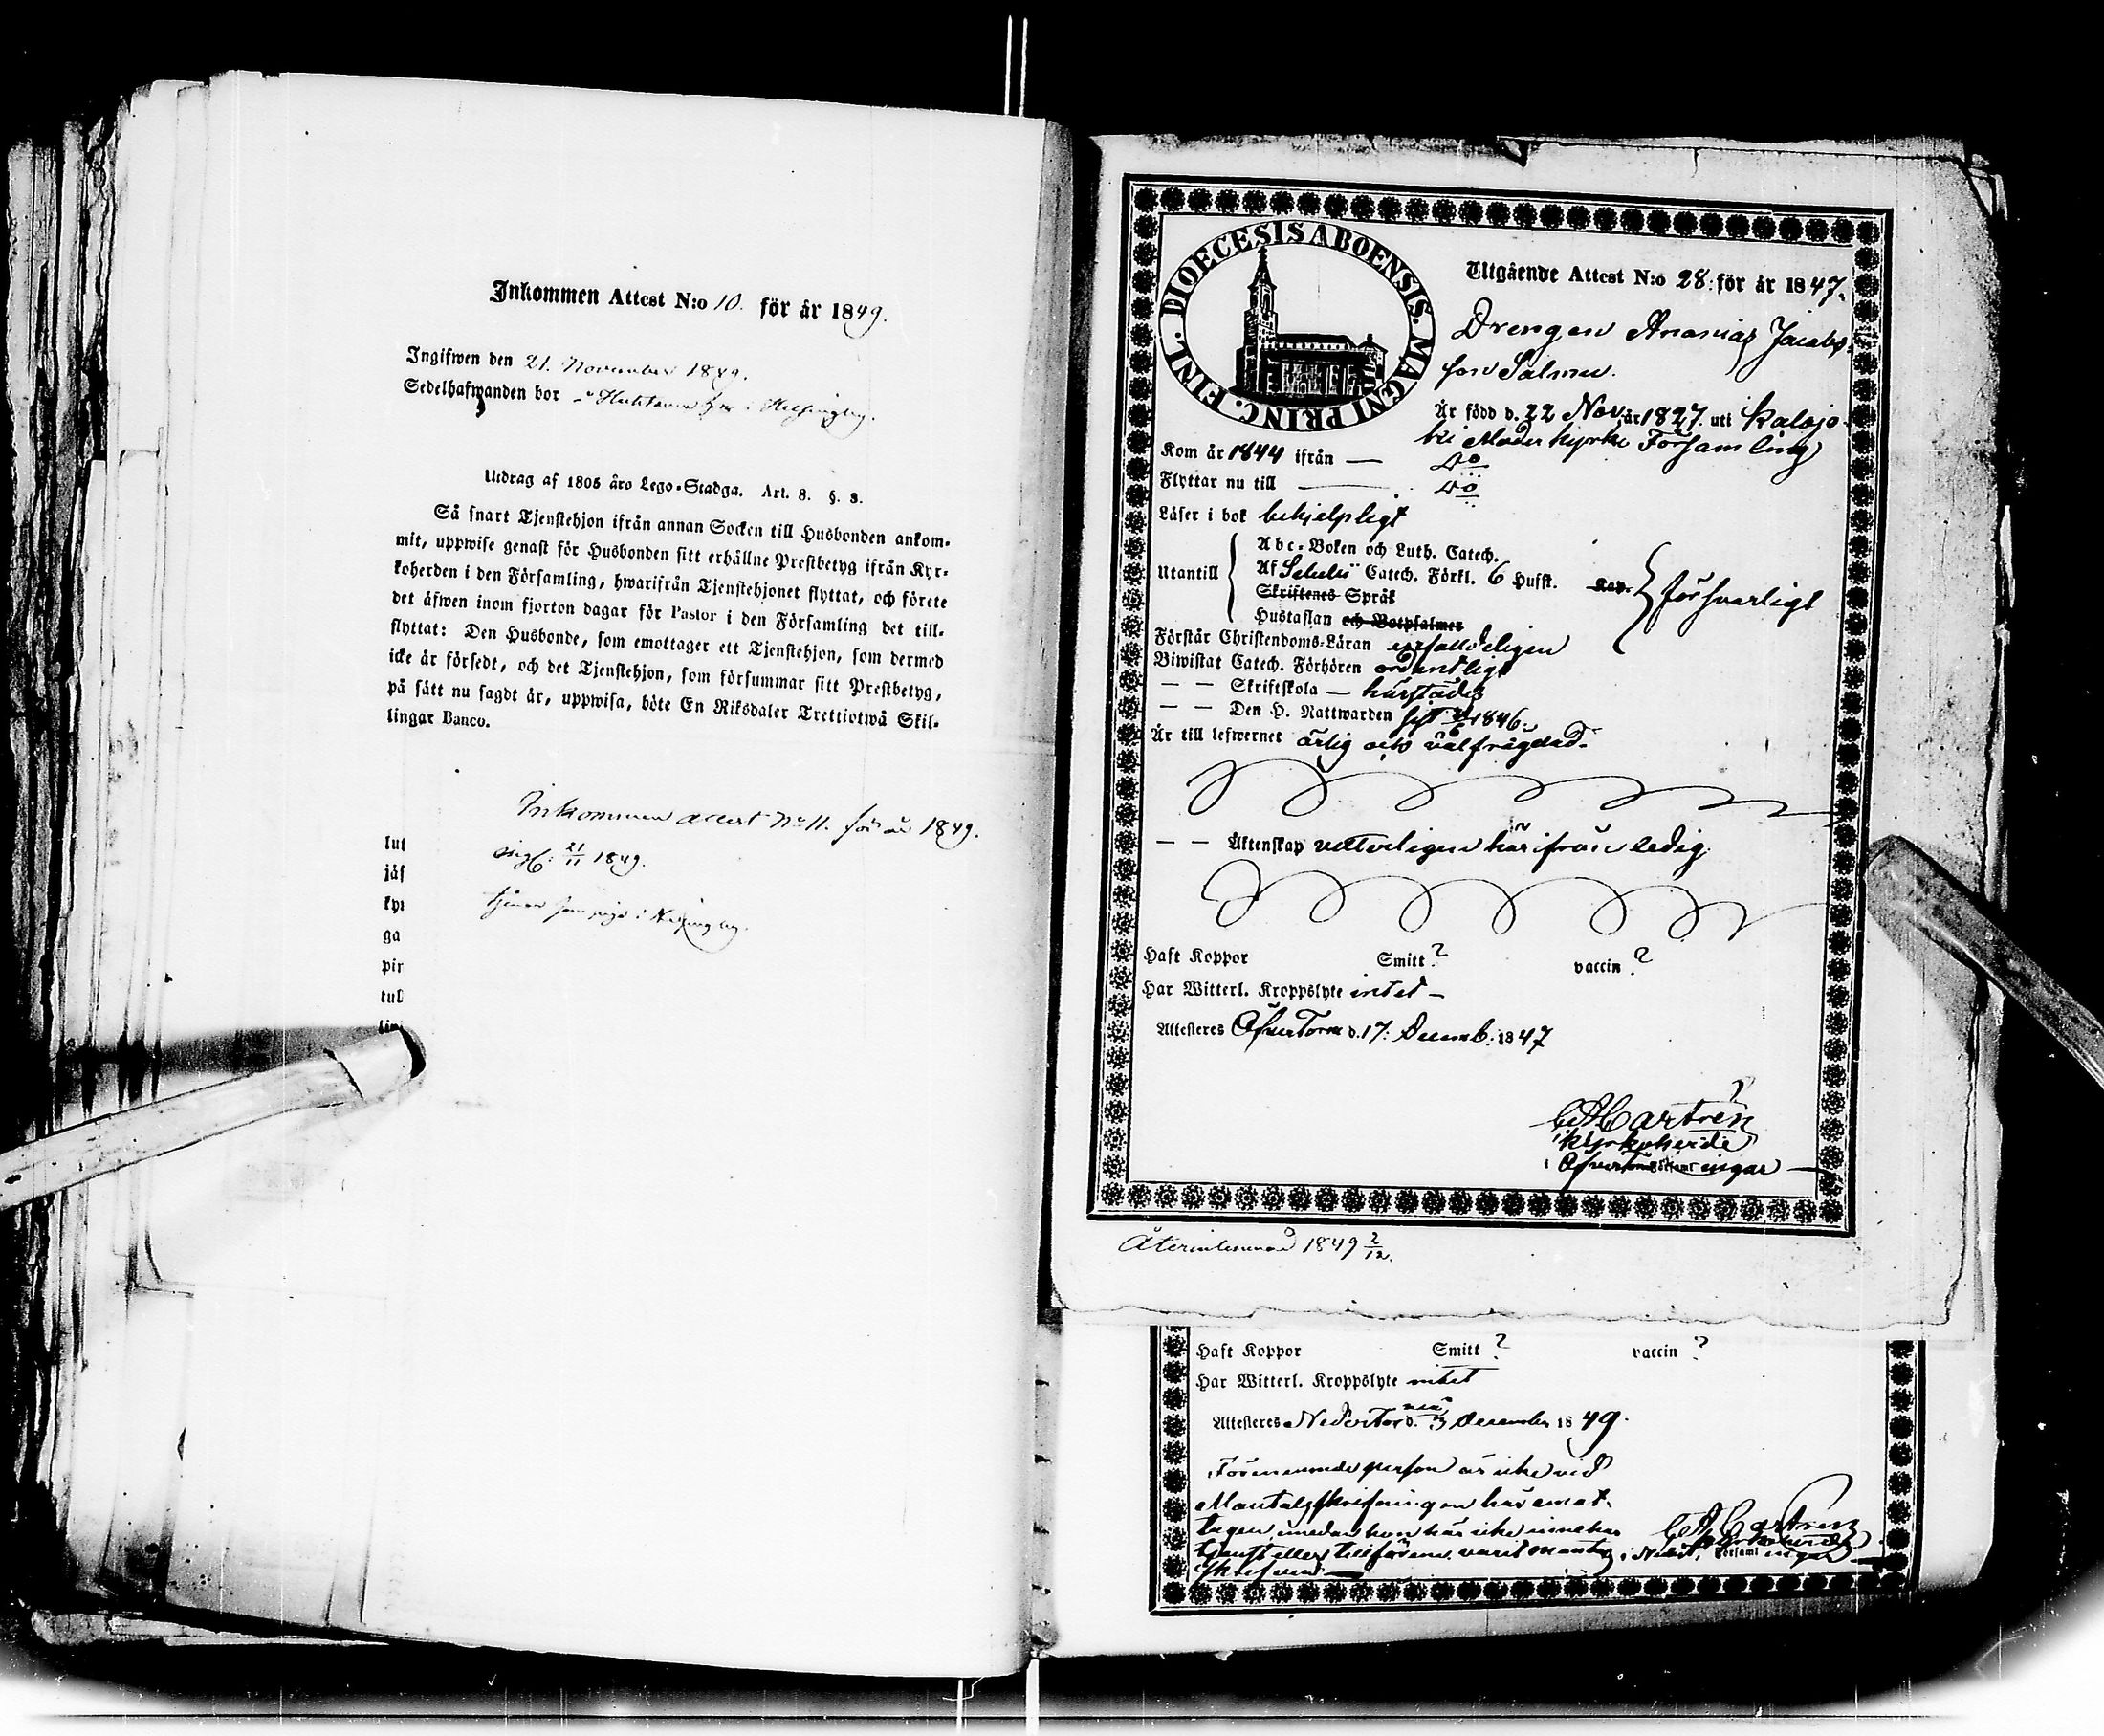 Inkommen Attest N:o 10. för år 1849.
Ingifwen den 21. November 1849.
Sedelhafwanden bor i Helsingby.
Utdrag af 1805 års Lego-Stadga. Art. 8. §. 8.
Så snart Tjenstehjon ifrån annan Socken till Husbonden ankom-
mit, uppwise genast för Husbonden sitt erhållne Prestbetyg ifrån Kyr-
koherden i den Församling, hwarifrån Tjenstehjonet flyttat, och förete
det äfwen inom fjorton dagar för Pastor i den Församling det till-
flyttat: Den Husbonde, som emottager ett Tjenstehjon, som dermed
icke är försedt, och det Tjenstehjon, som försummar sitt Prestbetyg,
på sätt nu sagdt är, uppwisa, böte En Riksdaler Trettiotwå Skil-
lingar Banco.
Inkommen attest No 11. för år 1849.
Ingf: 21/11 1849.
tjenar i Helsingby.
lut
jäf
kyr
ga
pir
tul
DIOECESIS ABOENSIS. MAGNI PRINC. FINL.
Utgående Attest N:o 28: för år 1847.
Drengen Ananias Jacobs-
son Salmu.
Är född d. 22 Nov. år 1827. uti Kalajo-
ki Moderkyrko Församling
Kom år 1844 ifrån — Do
Flyttar nu till — Do
Läser i bok behjelpligt
Utantill
Abc-Boken och Luth. Catech.
Af Sebelii Catech. Förkl. 6 Hufst. Kap.
Skriftenes Språk
Hustaflan och Botpsalmer
försvarligt
Förstår Christendoms-Läran enfaldeligen
Biwistat Catech. Förhören ordentligt
— — Skriftskola — härstädes
— — Den H. Nattwarden sist 1846.
Är till lefwernet ärlig och välfrägdad.
— — Äktenskap vetterligen härifrån ledig.
Haft Koppor Smitt? vaccin?
Har Witterl. Kroppslyte intet —
Attesteres OfverTorneå d. 17. Decemb. 1847
C A Cartrén
Kyrkoherde
i OfverTorneå Församlingar
Återinlemnad 1849 2/12.
Haft Koppor Smitt? vaccin?
Har Witterl. Kroppslyte intet
Attesteres NederTorneå d. 3 December 1849.
Förenemnde person är icke vid
Mantalsskrifningen här emot-
tagen, emedan hon här icke innehar
tjenst eller tillförene varit mantals-
skrifven. —
C A Cartrén
Kyrkoherde
i Nedert. Församlingar